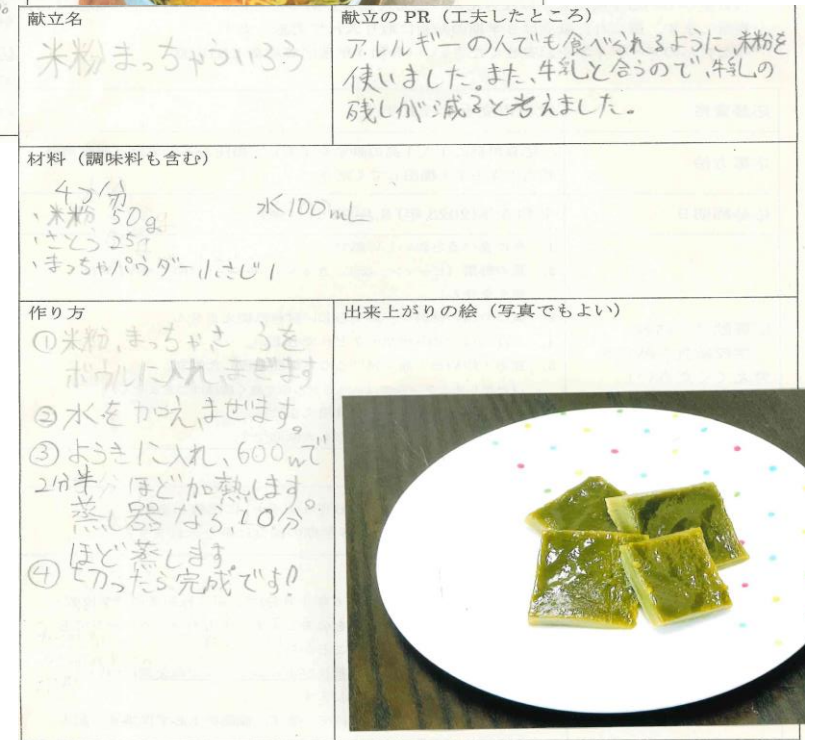 献立名
米粉まっちゃういろう
献立のPR(工夫したところ)
アレルギーの人でも食べられるように、米粉を
使いました。また、牛乳と合うので、牛乳の
残しが減ると考えました。
材料(調味料も含む)
4つ分
・米粉 50g
水100mL
・さとう25g
・まっちゃパウダー小さじ1
作り方
①米粉、まっちゃ、さ うを
ボウルに入れ、まぜます
②水を加え、まぜます。
③ようきに入れ、600wで
2分半 ほど加熱します。
蒸し器なら、10分
ほど蒸します。
④切ったら完成です!!
出来上がりの絵(写真でもよい)